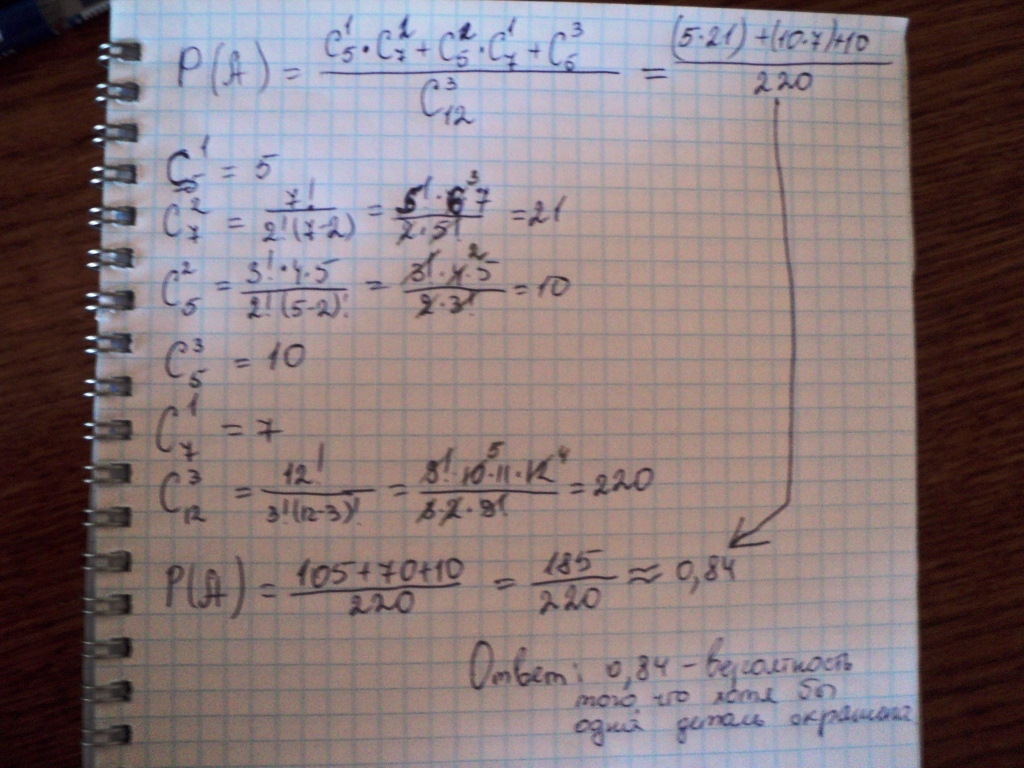 P(A) = (C_5^1 · C_7^2 + C_5^2 · C_7^1 + C_5^3) / C_12^3 = ((5·21)+(10·7)+10) / 220
C_5^1 = 5
C_7^2 = 7! / 2!(7-2) = 5!·6·7 / 2·5! = 21
C_5^2 = 3!·4·5 / 2!(5-2)! = 3!·4·5 / 2·3! = 10
C_5^3 = 10
C_7^1 = 7
C_12^3 = 12! / 3!(12-3)! = 9!·10·11·12 / 3·2·9! = 220
P(A) = (105+70+10) / 220 = 185 / 220 ≈ 0,84
Ответ: 0,84 - вероятность
того, что хотя бы
одна деталь окрашена